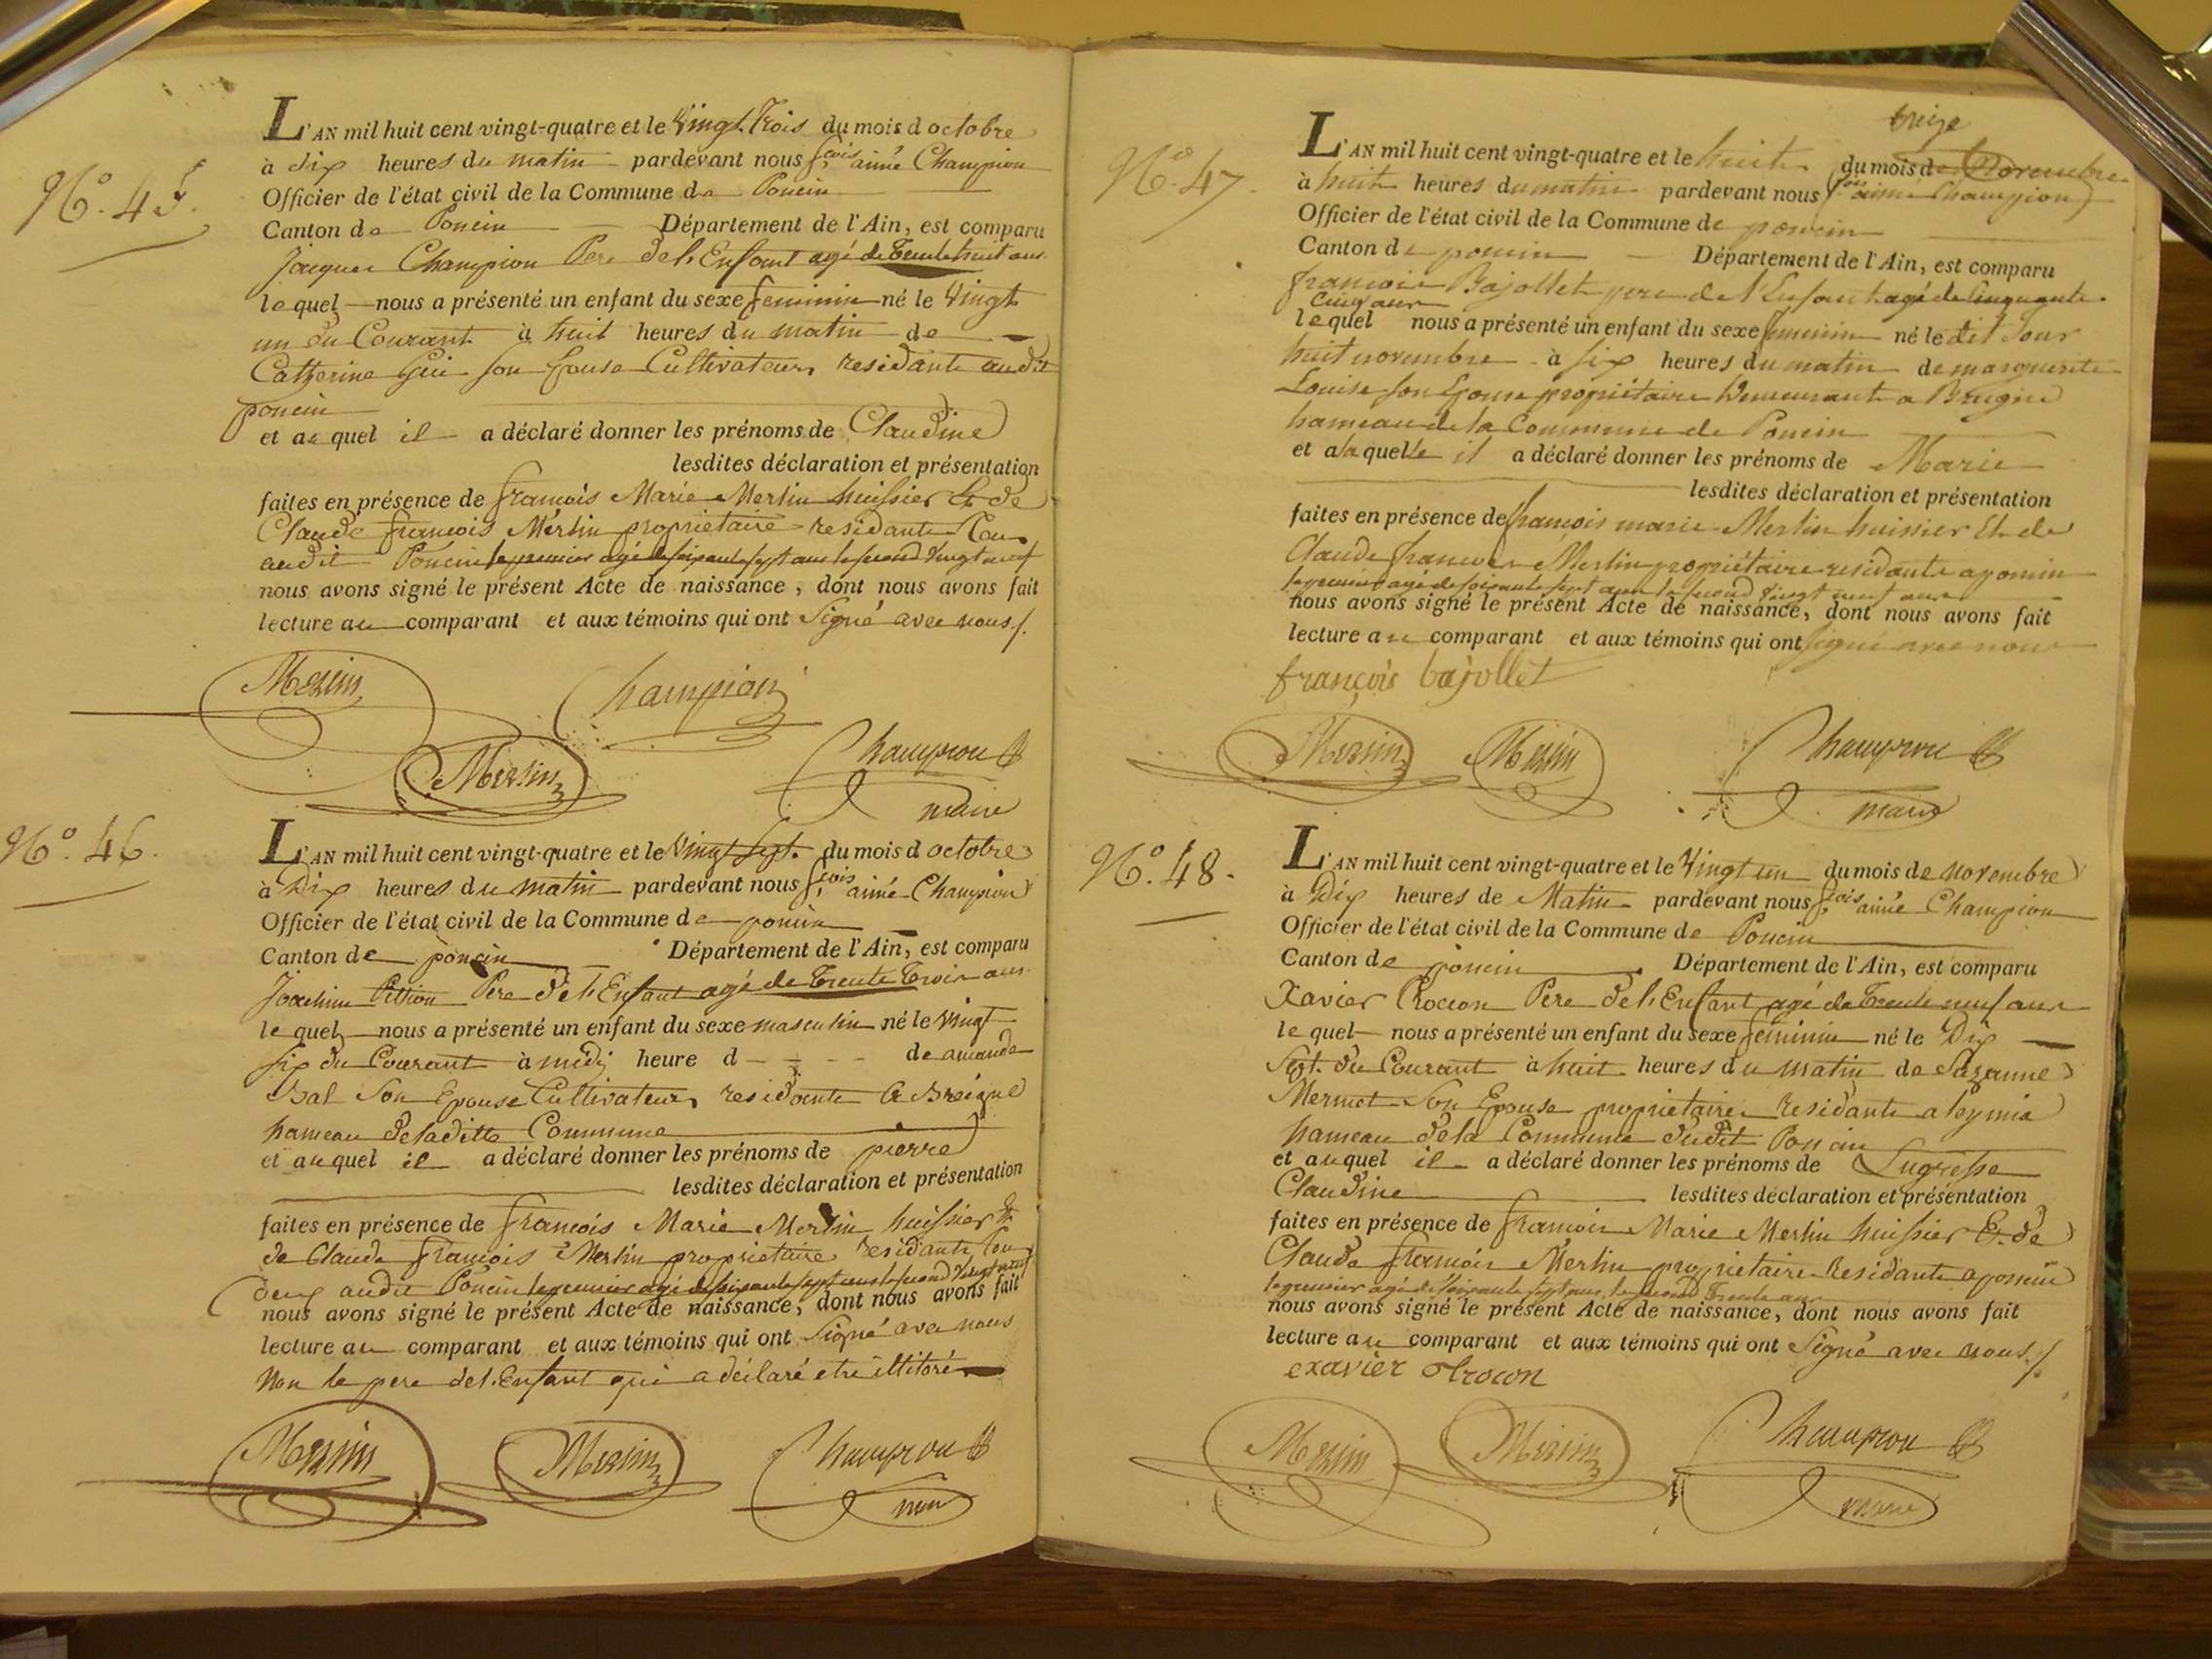 N.o 45.
L'AN mil huit cent vingt-quatre et le Vingt Trois du mois d octobre
à dix heures du matin pardevant nous f.cois aimé Champion
Officier de l'état civil de la Commune de Poncin
Canton de Poncin Département de l'Ain, est comparu
Jacques Champion Pere de l'Enfant agé de trente huit ans
le quel nous a présenté un enfant du sexe feminin né le Vingt
un du Courant à huit heures du matin de
Catherine Gui son Epouse Cultivateurs residants audit
poncin
et au quel il a déclaré donner les prénoms de Claudine
lesdites déclaration et présentation
faites en présence de françois Marie Merlin huissier Et de
Claude françois Merlin propriétaire residants Tous
audit Poncin le premier agé de soixante sept ans le second Vingt neuf
nous avons signé le présent Acte de naissance, dont nous avons fait
lecture au comparant et aux témoins qui ont Signé avec nous /.
Merlin Champion
Merlin Champion
maire
N.o 46.
L'AN mil huit cent vingt-quatre et le Vingt Sept. du mois d octobre
à Dix heures du matin pardevant nous f.cois aimé Champion
Officier de l'état civil de la Commune de poncin
Canton de poncin Département de l'Ain, est comparu
Joachim Pittion Pere de l'Enfant agé de trente trois ans
le quel nous a présenté un enfant du sexe masculin né le Vingt
six du Courant à midi heure d de amande
Bal Son Epouse Cultivateurs residants à Breigne
hameau de ladite Commune
et au quel il a déclaré donner les prénoms de pierre
lesdites déclaration et présentation
faites en présence de françois Marie Merlin huissier Et
de Claude françois Merlin propriétaire residants tous
deux audit Poncin le premier agé de soixante sept ans le second Vingt neuf
nous avons signé le présent Acte de naissance, dont nous avons fait
lecture au comparant et aux témoins qui ont Signé avec nous
Non le pere de l'Enfant qui a déclaré etre illitéré
Merlin Merlin Champion
maire
N.o 47.
treize
L'AN mil huit cent vingt-quatre et le huit du mois de Novembre
à huit heures du matin pardevant nous f.cois aimé Champion
Officier de l'état civil de la Commune de poncin
Canton de poncin Département de l'Ain, est comparu
françois Bajollet pere de l'Enfant agé de Cinquante
Cinq ans
le quel nous a présenté un enfant du sexe feminin né le dit Jour
huit novembre à six heures du matin de marguerite
Louise son Epouse propriétaire Demeurants a Breigne
hameau de la Commune de Poncin
et a la quelle il a déclaré donner les prénoms de Marie
lesdites déclaration et présentation
faites en présence de françois marie Merlin huissier Et de
Claude françois Merlin propriétaire residants a poncin
le premier agé de soixante sept ans le second Vingt neuf ans
nous avons signé le présent Acte de naissance, dont nous avons fait
lecture au comparant et aux témoins qui ont signé avec nous
françois bajollet
Merlin Merlin Champion
maire
N.o 48.
L'AN mil huit cent vingt-quatre et le Vingt un du mois de novembre
à Dix heures de Matin pardevant nous f.cois aimé Champion
Officier de l'état civil de la Commune de Poncin
Canton de poncin Département de l'Ain, est comparu
Xavier Trocon Pere de l'Enfant agé de trente neuf ans
le quel nous a présenté un enfant du sexe feminin né le Dix
Sept. du Courant à huit heures du matin de Suzanne
Mermet Son Epouse propriétaires Residants a leymia
hameau de la Commune dudit Poncin
et au quel il a déclaré donner les prénoms de Lugresse
Claudine lesdites déclaration et présentation
faites en présence de françois Marie Merlin huissier Et de
Claude françois Merlin propriétaire Residants a poncin
le premier agé de soixante sept ans, le second Trente ans
nous avons signé le présent Acte de naissance, dont nous avons fait
lecture au comparant et aux témoins qui ont Signé avec nous /.
exavier trocon
Merlin Merlin Champion
maire